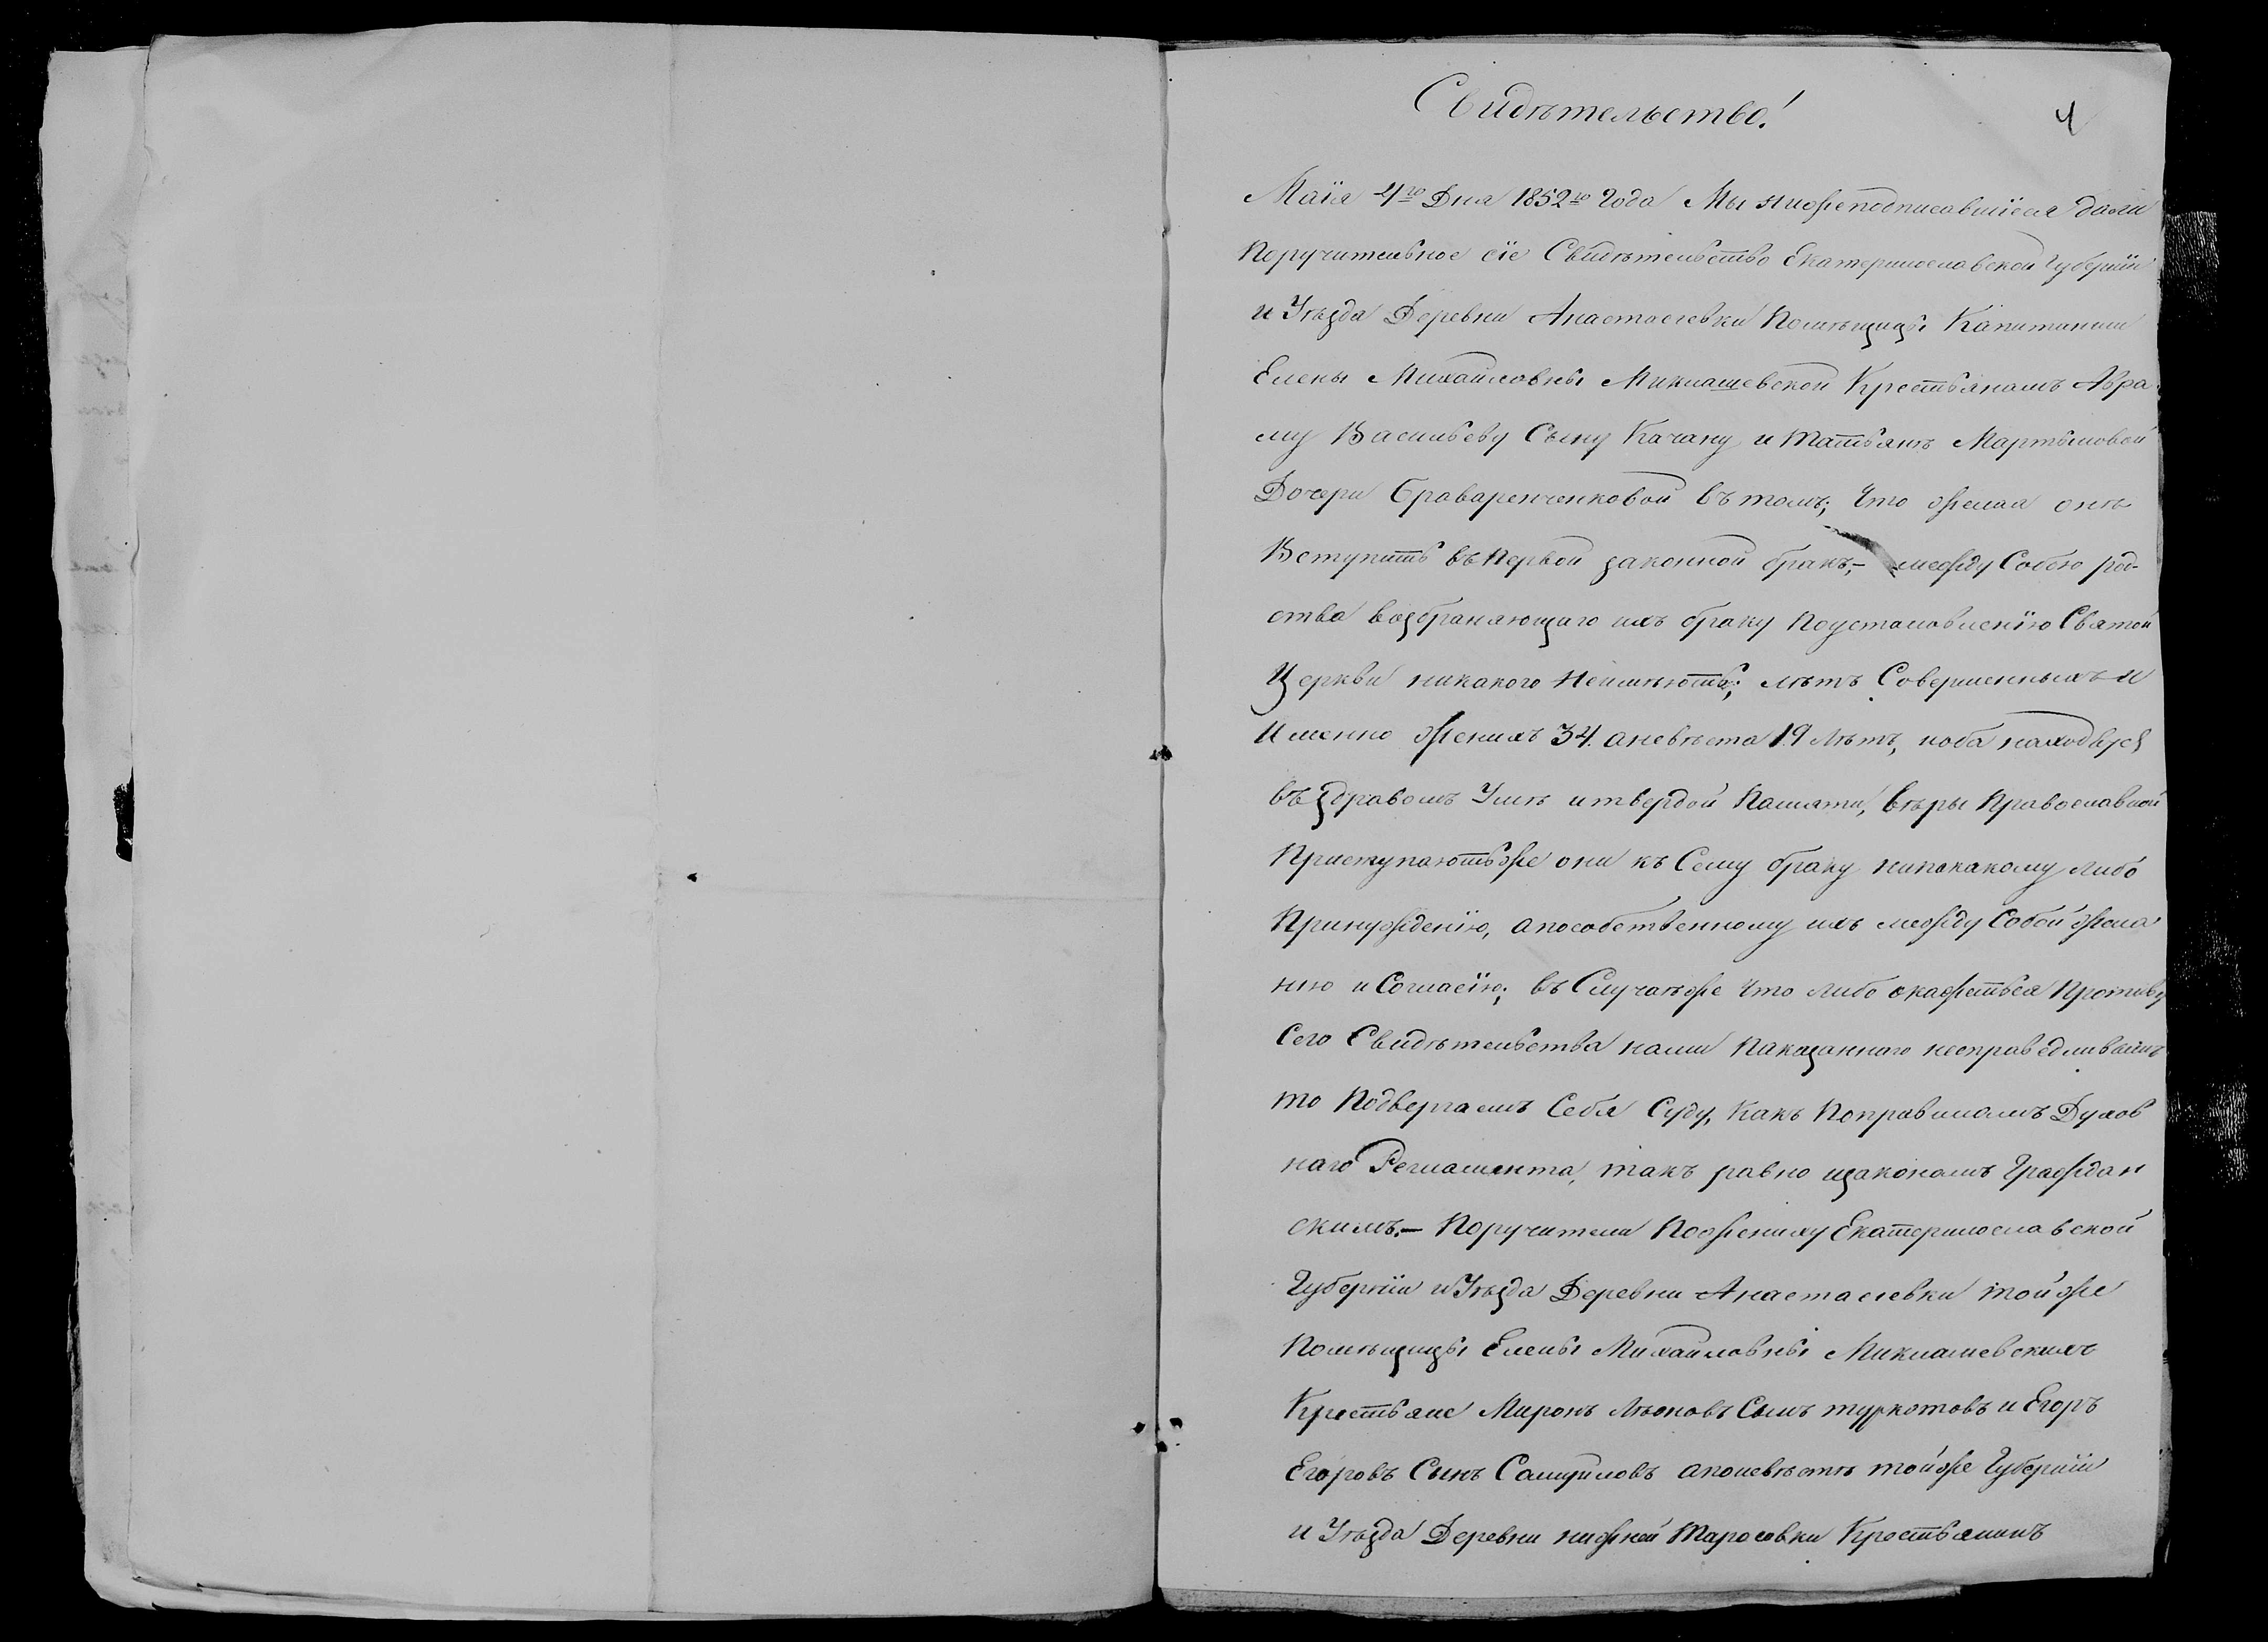 Свидѣтельство!
4
Маія 4го Дня 1852го Года Мы нижеподписавшіеся дали
Поручительное сіе Свидѣтельство Екатеринославской Губерніи
и Уѣзда Деревни Анастасіевки Помѣщицы Капитанши
Елены Михайловны Миклашевской Крестьянамъ Авра-
му Васильеву Сыну Качану и Татьянѣ Мартыновой
Дочери Браваренченковой въ томъ; Что желая онѣ
Вступить въ Первой законной бракъ,- между Собою род-
ства возбраняющаго ихъ браку Поустановленію Святой
Церкви никакого Неимѣютъ; лѣтъ Совершенныхъ и
Именно женихъ 34. аневѣста 19 Лѣтъ, иоба находятся
въ здравомъ Умѣ итвердой Памяти, вѣры Православной
Приступаютъже они къ Сему браку нипокакому либо
Принужденію, апособственному ихъ между Собой жела
нію и Согласію; въ Случаѣже Что либо окажеться Противу
Сего Свидѣтельства нами Паказаннаго несправедливымъ
то Подвергаемъ Себя Суду, Какъ Поправиламъ Духов
наго Регламента, такъ равно изаконамъ Граждан
скимъ.- Поручители Поженику Екатеринославской
Губерніи и Уѣзда Деревни Анастасіевки тойже
Помѣщицы Елены Михайловны Миклашевскихъ
Крестьяне Миронъ Лѣоновъ Сынъ туркотовъ и Егоръ
Егоровъ Сынъ Самуиловъ апоневѣстѣ тойже Губерніи
и Уѣзда Деревни нижней Таросовки Крестьянинъ